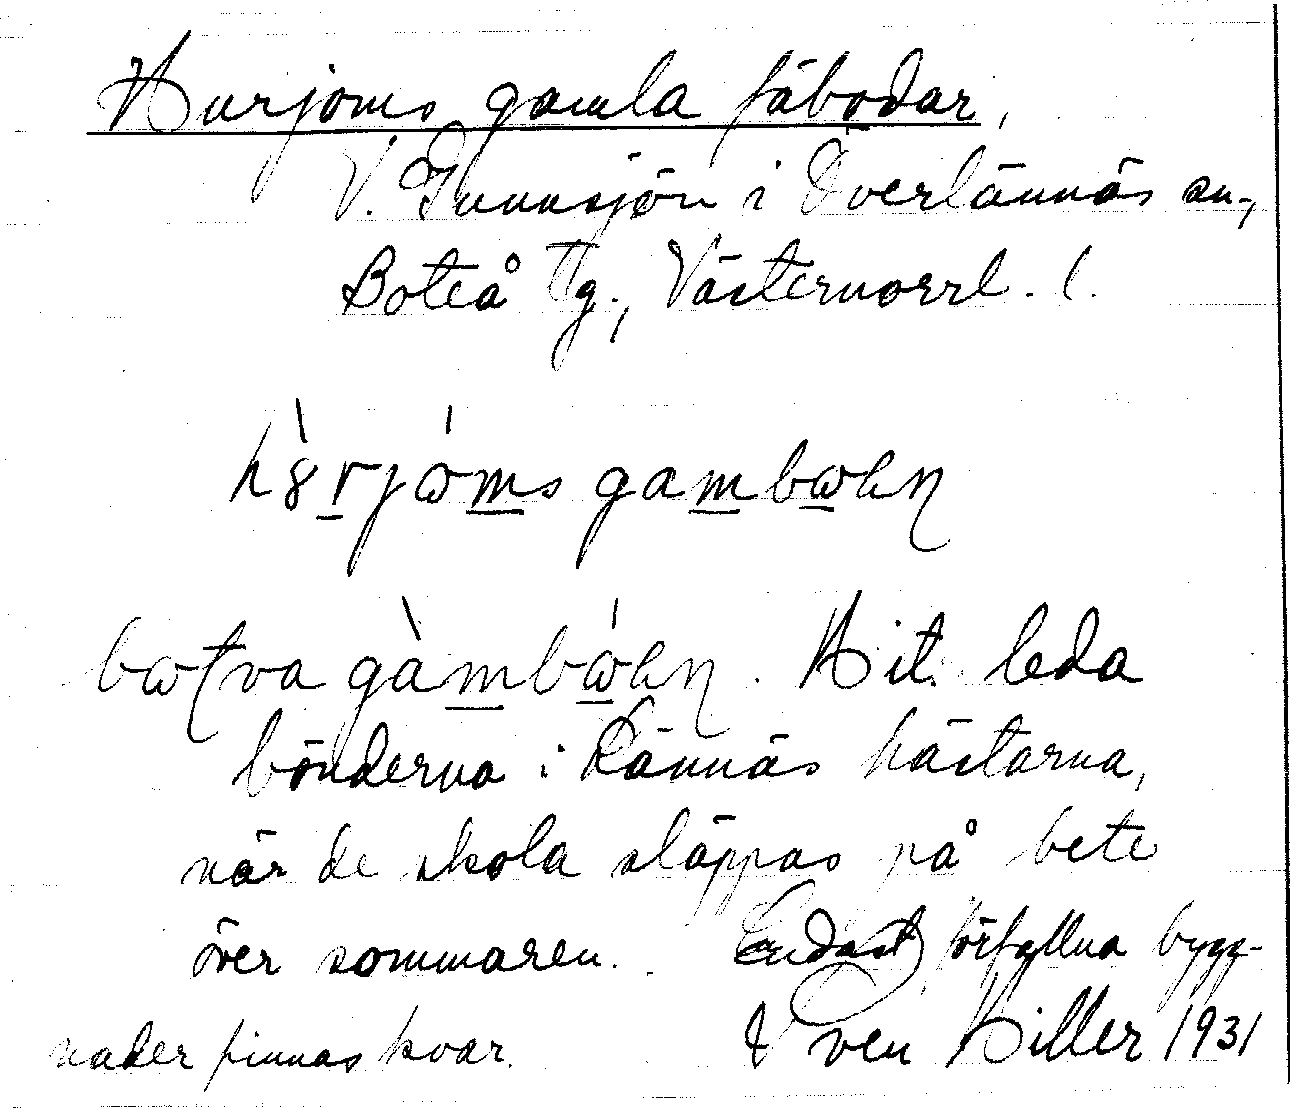 Hurjoms gamla fäbodar,
V. Gunnsjön i Överlännäs sn.,
Boteå tg., Västernorrl. l.
gambωen
gàmbώen. Hit leda
bönderna i Lännäs hästarna,
när de skola släppas på bete
över sommaren. Endast förfallna bygg-
nader finnas kvar. Sven Hiller 1931